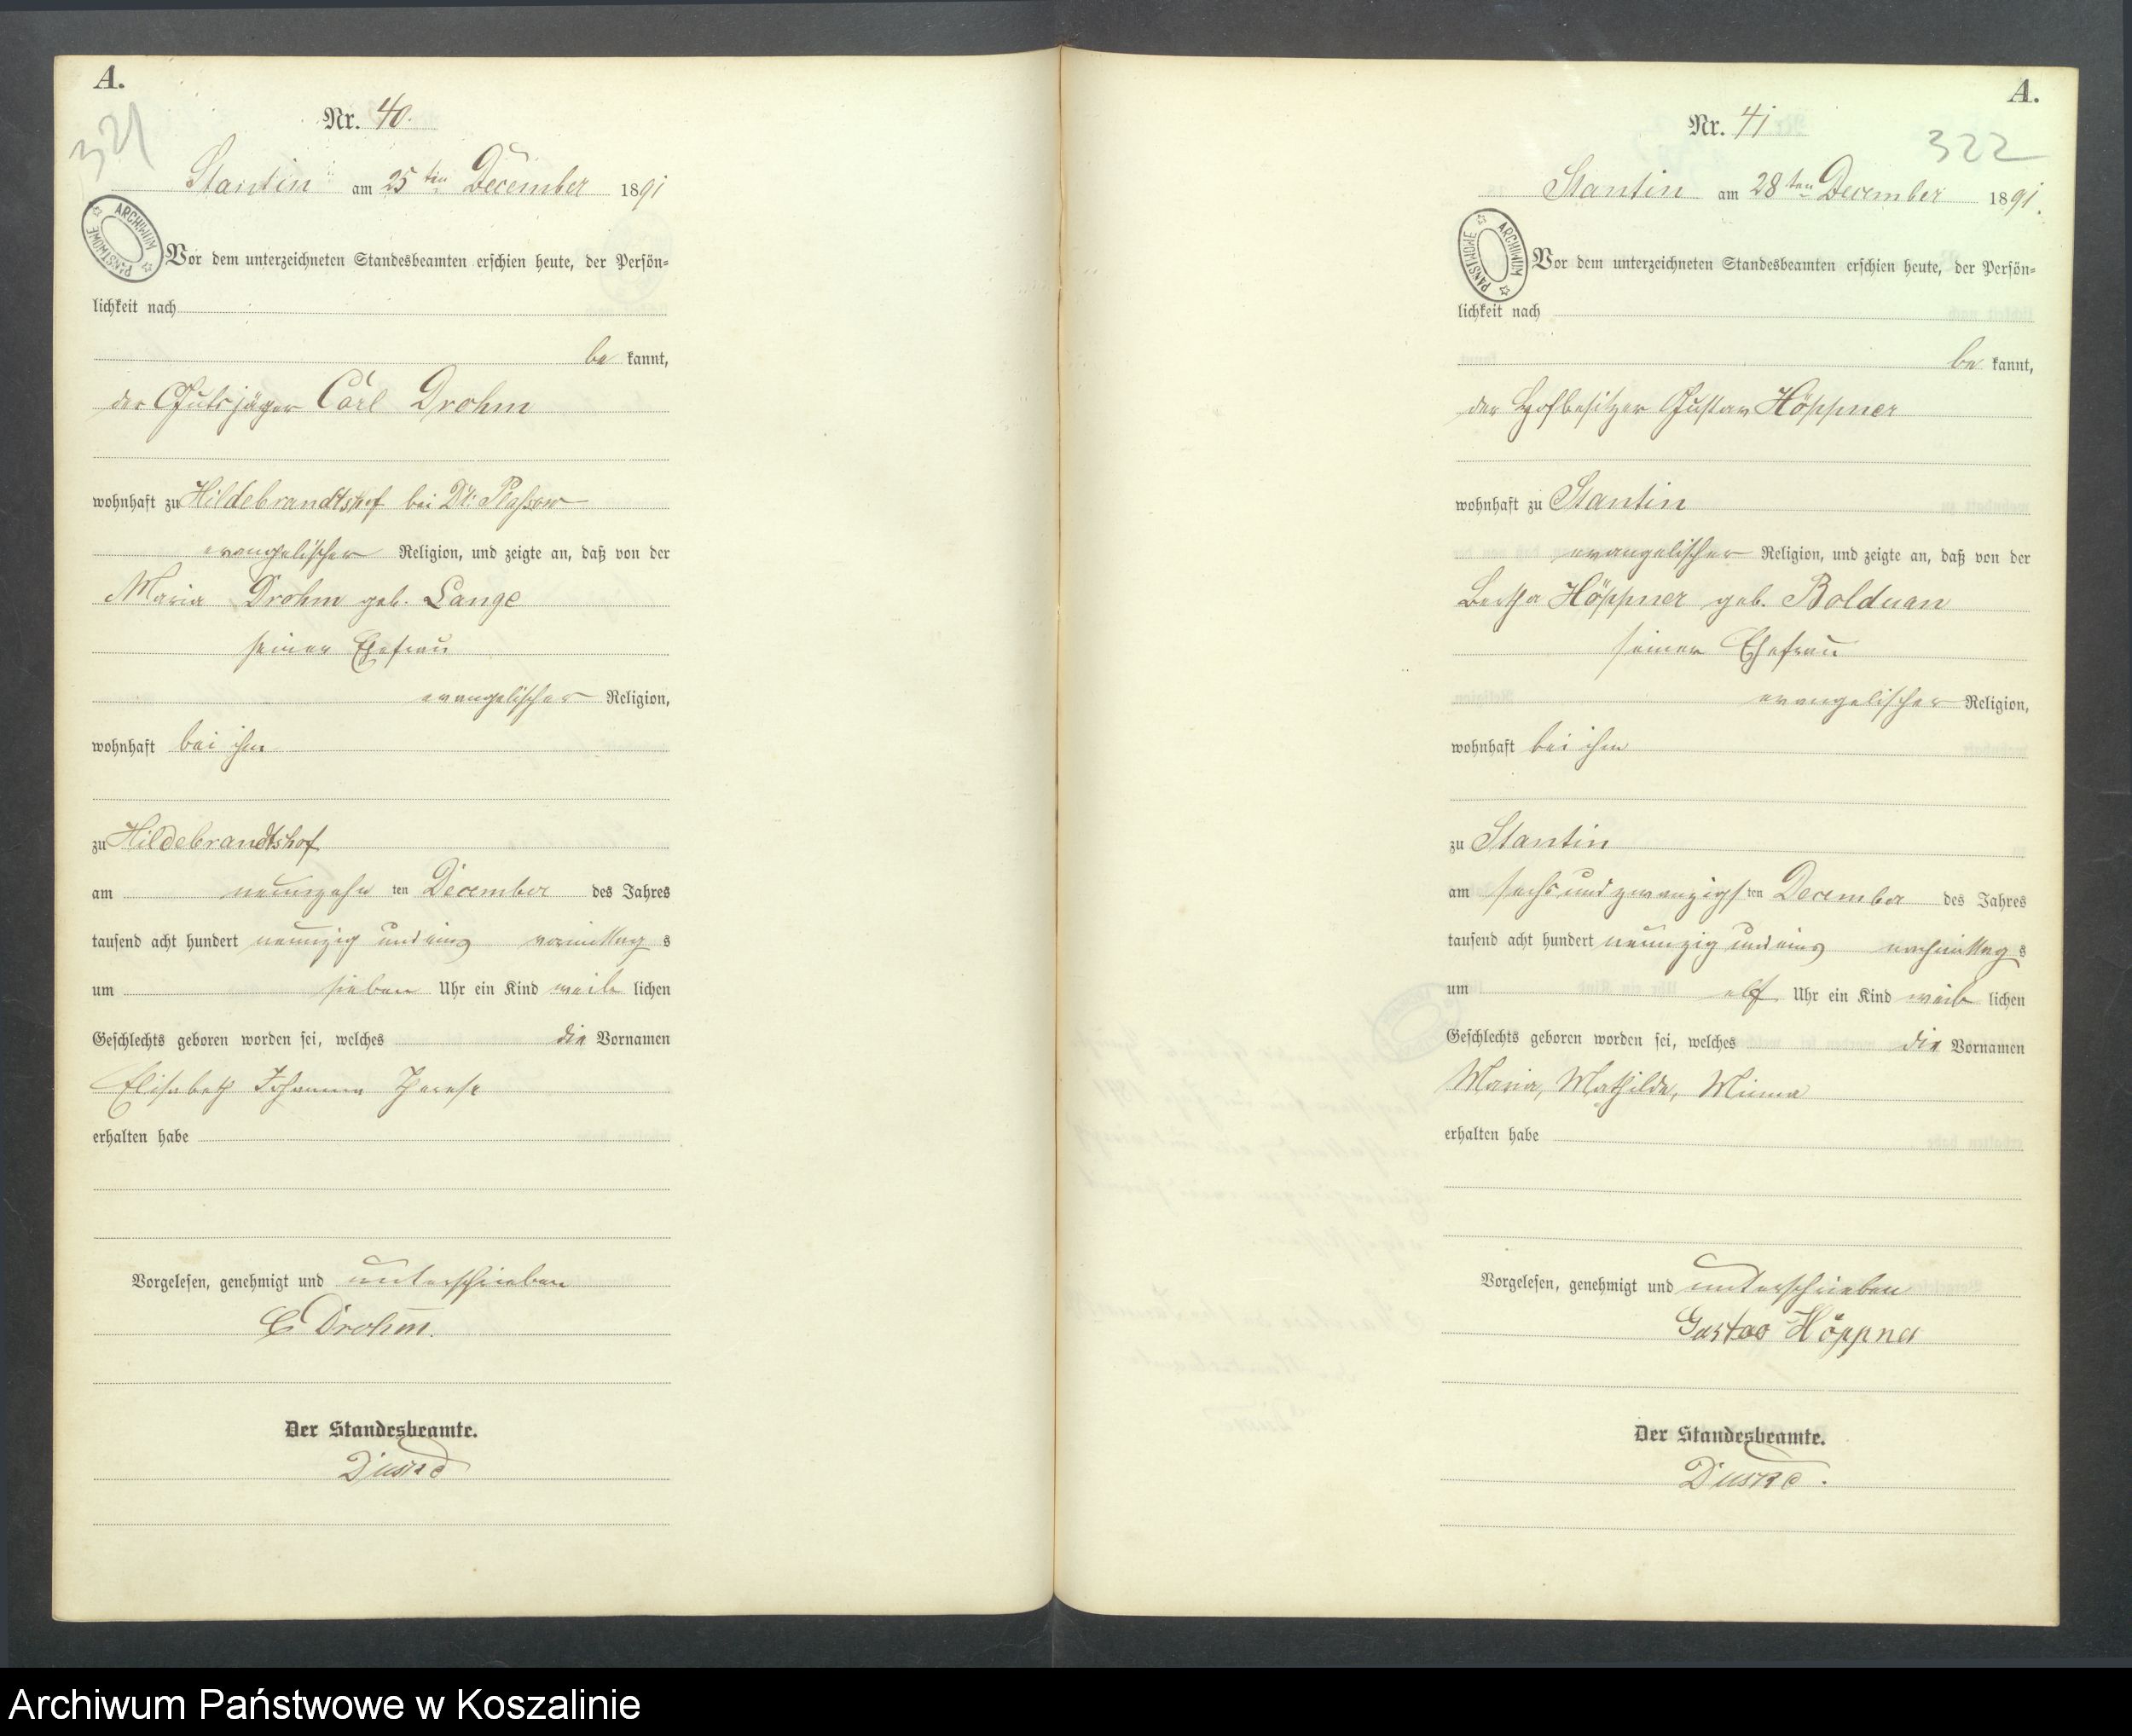 A.
321
Nr. 40.
Stantin am 25ten December 1891
ARCHIWUM PAŃSTWOWE
Vor dem unterzeichneten Standesbeamten erschien heute, der Persön-
lichkeit nach
be kannt,
der Gutsjäger Carl Drohm
wohnhaft zu Hildebrandtshof bei Dt: Plassow
evangelischer Religion, und zeigte an, daß von der
Maria Drohm geb. Lange
seiner Ehefrau
evangelischer Religion,
wohnhaft bei ihm
zu Hildebrandtshof
am neunzehn ten December des Jahres
tausend acht hundert neunzig und eins vormittag s
um sieben Uhr ein Kind weib lichen
Geschlechts geboren worden sei, welches die Vornamen
Elisabeth Johanna Therese
erhalten habe
Vorgelesen, genehmigt und unterschrieben
C Drohm.
Der Standesbeamte.
A.
Nr. 41
322
Stantin am 28ten December 1891.
ARCHIWUM PAŃSTWOWE
Vor dem unterzeichneten Standesbeamten erschien heute, der Persön-
lichkeit nach
be kannt,
der Hofbesitzer Gustav Höppner
wohnhaft zu Stantin
evangelischer Religion, und zeigte an, daß von der
Bertha Höppner geb. Bolduan
seiner Ehefrau
evangelischer Religion,
wohnhaft bei ihm
zu Stantin
am sechs und zwanzigs ten December des Jahres
tausend acht hundert neunzig und eins nachmittag s
um elf Uhr ein Kind weib lichen
Geschlechts geboren worden sei, welches die Vornamen
Maria, Mathilde, Minna
erhalten habe
Vorgelesen, genehmigt und unterschrieben
Gustav Höppner
Der Standesbeamte.
Archiwum Państwowe w Koszalinie